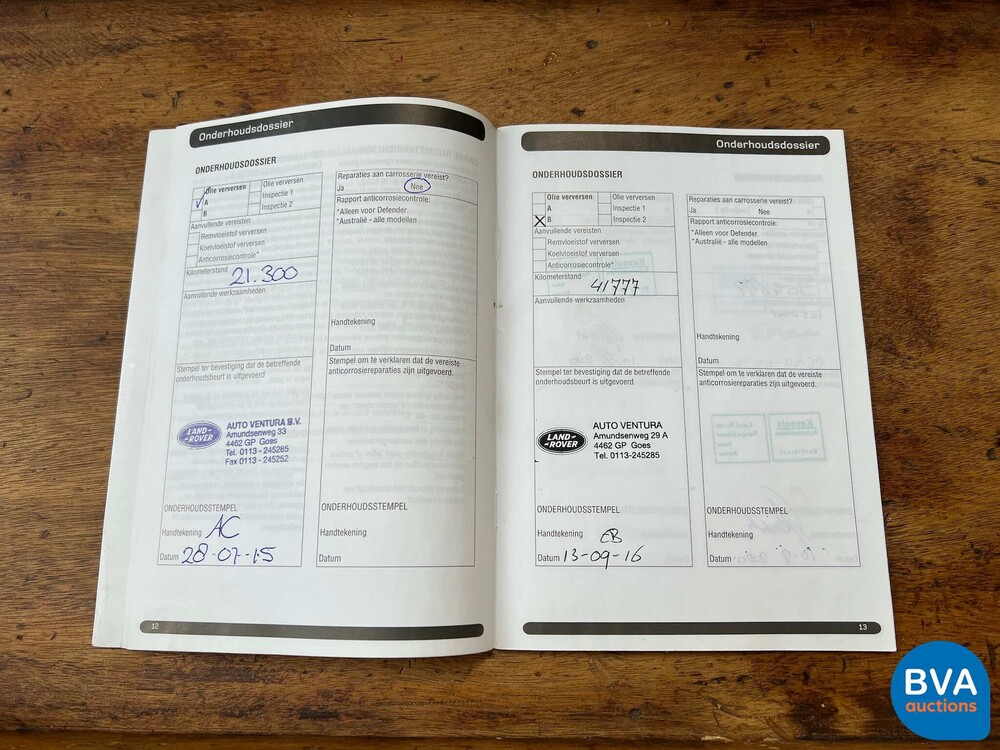 Onderhoudsdossier
ONDERHOUDSDOSSIER
Olie verversen
A
B
Olie verversen
Inspectie 1
Inspectie 2
Aanvullende vereisten
Remvloeistof verversen
Koelvloeistof verversen
Anticorrosiecontrole*
Kilometerstand 21.300
Aanvullende werkzaamheden
Stempel ter bevestiging dat de betreffende
onderhoudsbeurt is uitgevoerd
LAND-
ROVER
AUTO VENTURA B.V.
Amundsenweg 33
4462 GP Goes
Tel. 0113 - 245285
Fax 0113 - 245252
ONDERHOUDSSTEMPEL
Handtekening AC
Datum 28-07-15
Reparaties aan carrosserie vereist?
Ja Nee
Rapport anticorrosiecontrole:
*Alleen voor Defender.
*Australië - alle modellen
Handtekening
Datum
Stempel om te verklaren dat de vereiste
anticorrosiereparaties zijn uitgevoerd.
ONDERHOUDSSTEMPEL
Handtekening
Datum
12
Onderhoudsdossier
ONDERHOUDSDOSSIER
Olie verversen
A
B
Olie verversen
Inspectie 1
Inspectie 2
Aanvullende vereisten
Remvloeistof verversen
Koelvloeistof verversen
Anticorrosiecontrole*
Kilometerstand
41777
Aanvullende werkzaamheden
Stempel ter bevestiging dat de betreffende
onderhoudsbeurt is uitgevoerd
LAND-
ROVER
AUTO VENTURA
Amundsenweg 29 A
4462 GP Goes
Tel. 0113-245285
ONDERHOUDSSTEMPEL
Handtekening EB
Datum 13-09-16
Reparaties aan carrosserie vereist?
Ja Nee
Rapport anticorrosiecontrole:
*Alleen voor Defender.
*Australië - alle modellen
Handtekening
Datum
Stempel om te verklaren dat de vereiste
anticorrosiereparaties zijn uitgevoerd.
ONDERHOUDSSTEMPEL
Handtekening
Datum
13
BVA
auctions